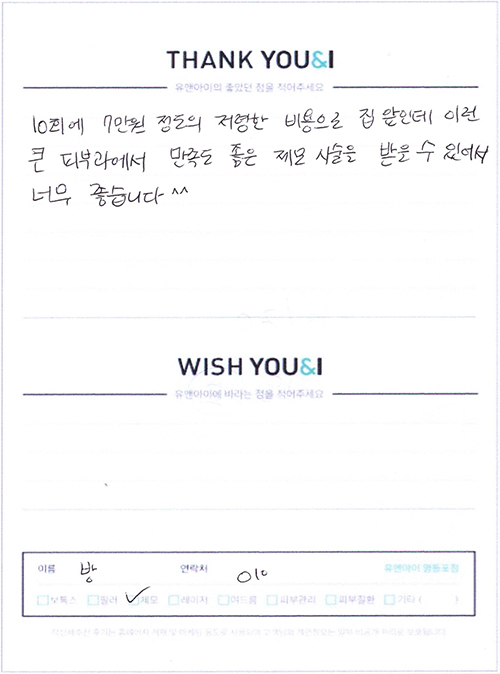 THANK YOU&I
유앤아이의 좋았던 점을 적어주세요
10회에 7만원 정도의 저렴한 비용으로 집 앞인데 이런
큰 피부과에서 만족도 좋은 제모 시술을 받을 수 있어서
너무 좋습니다 ^^
WISH YOU&I
유앤아이에 바라는 점을 적어주세요
이름 방 연락처 010 유앤아이 행동포점
보톡스 필러 제모 레이저 여드름 피부관리 피부질환 기타 ( )